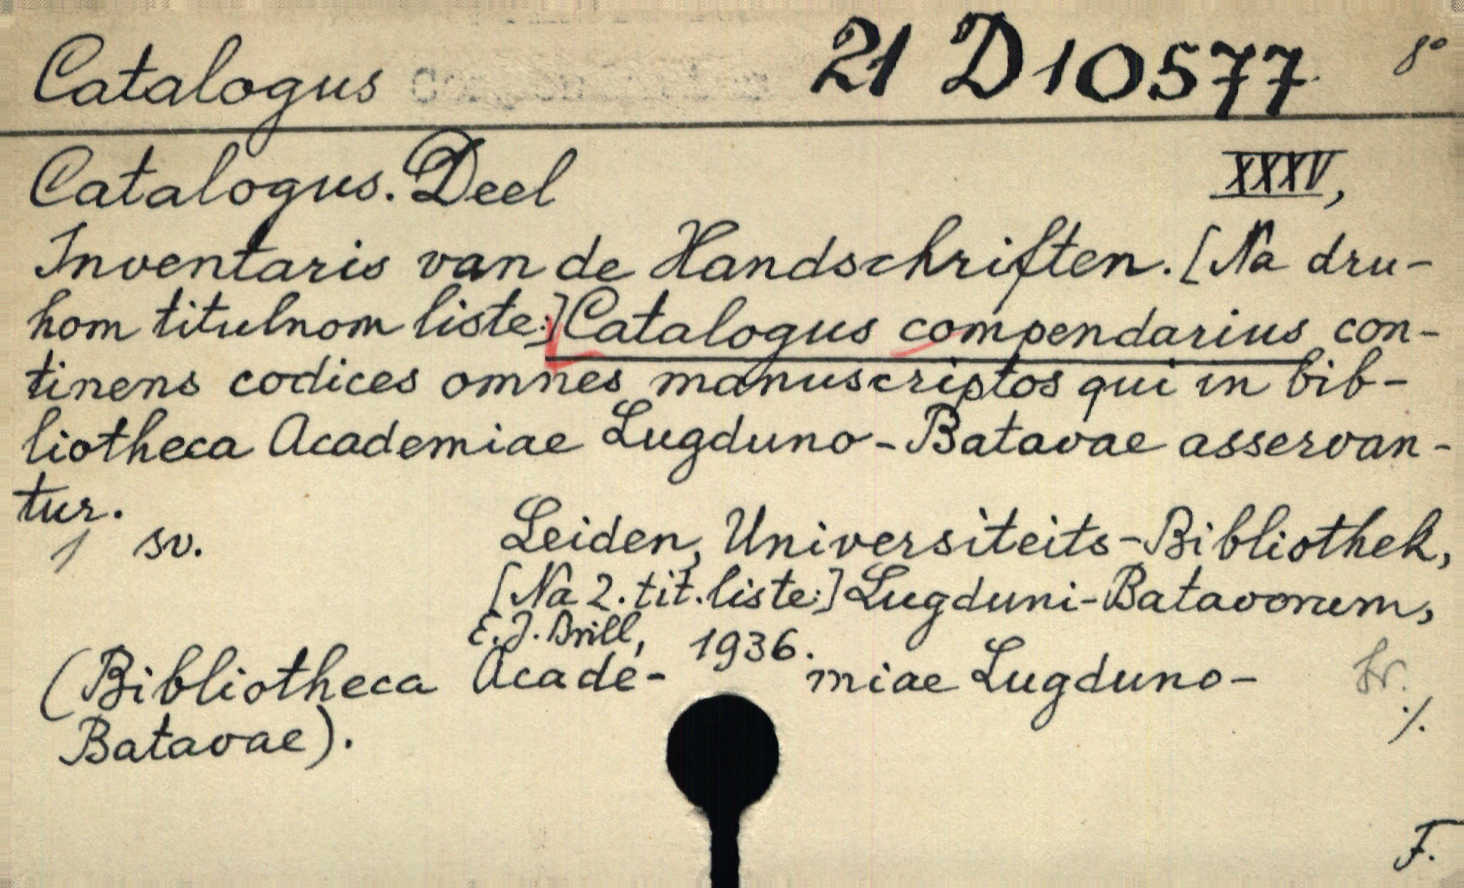 Catalogus 21 D 10577 8°
Catalogus. Deel XXXV,
Inventaris van de Handschriften. [Na dru-
hom titulnom liste:] Catalogus compendarius con-
tinens codices omnes manuscriptos qui in bib-
liotheca Academiae Lugduno-Batavae asservan-
tur.
1 sv. Leiden, Universiteits-Bibliothek,
[Na 2. tit. liste:] Lugduni-Batavorum,
E. J. Brill, 1936.
(Bibliotheca Acade- miae Lugduno-
Batavae).
./.
F.